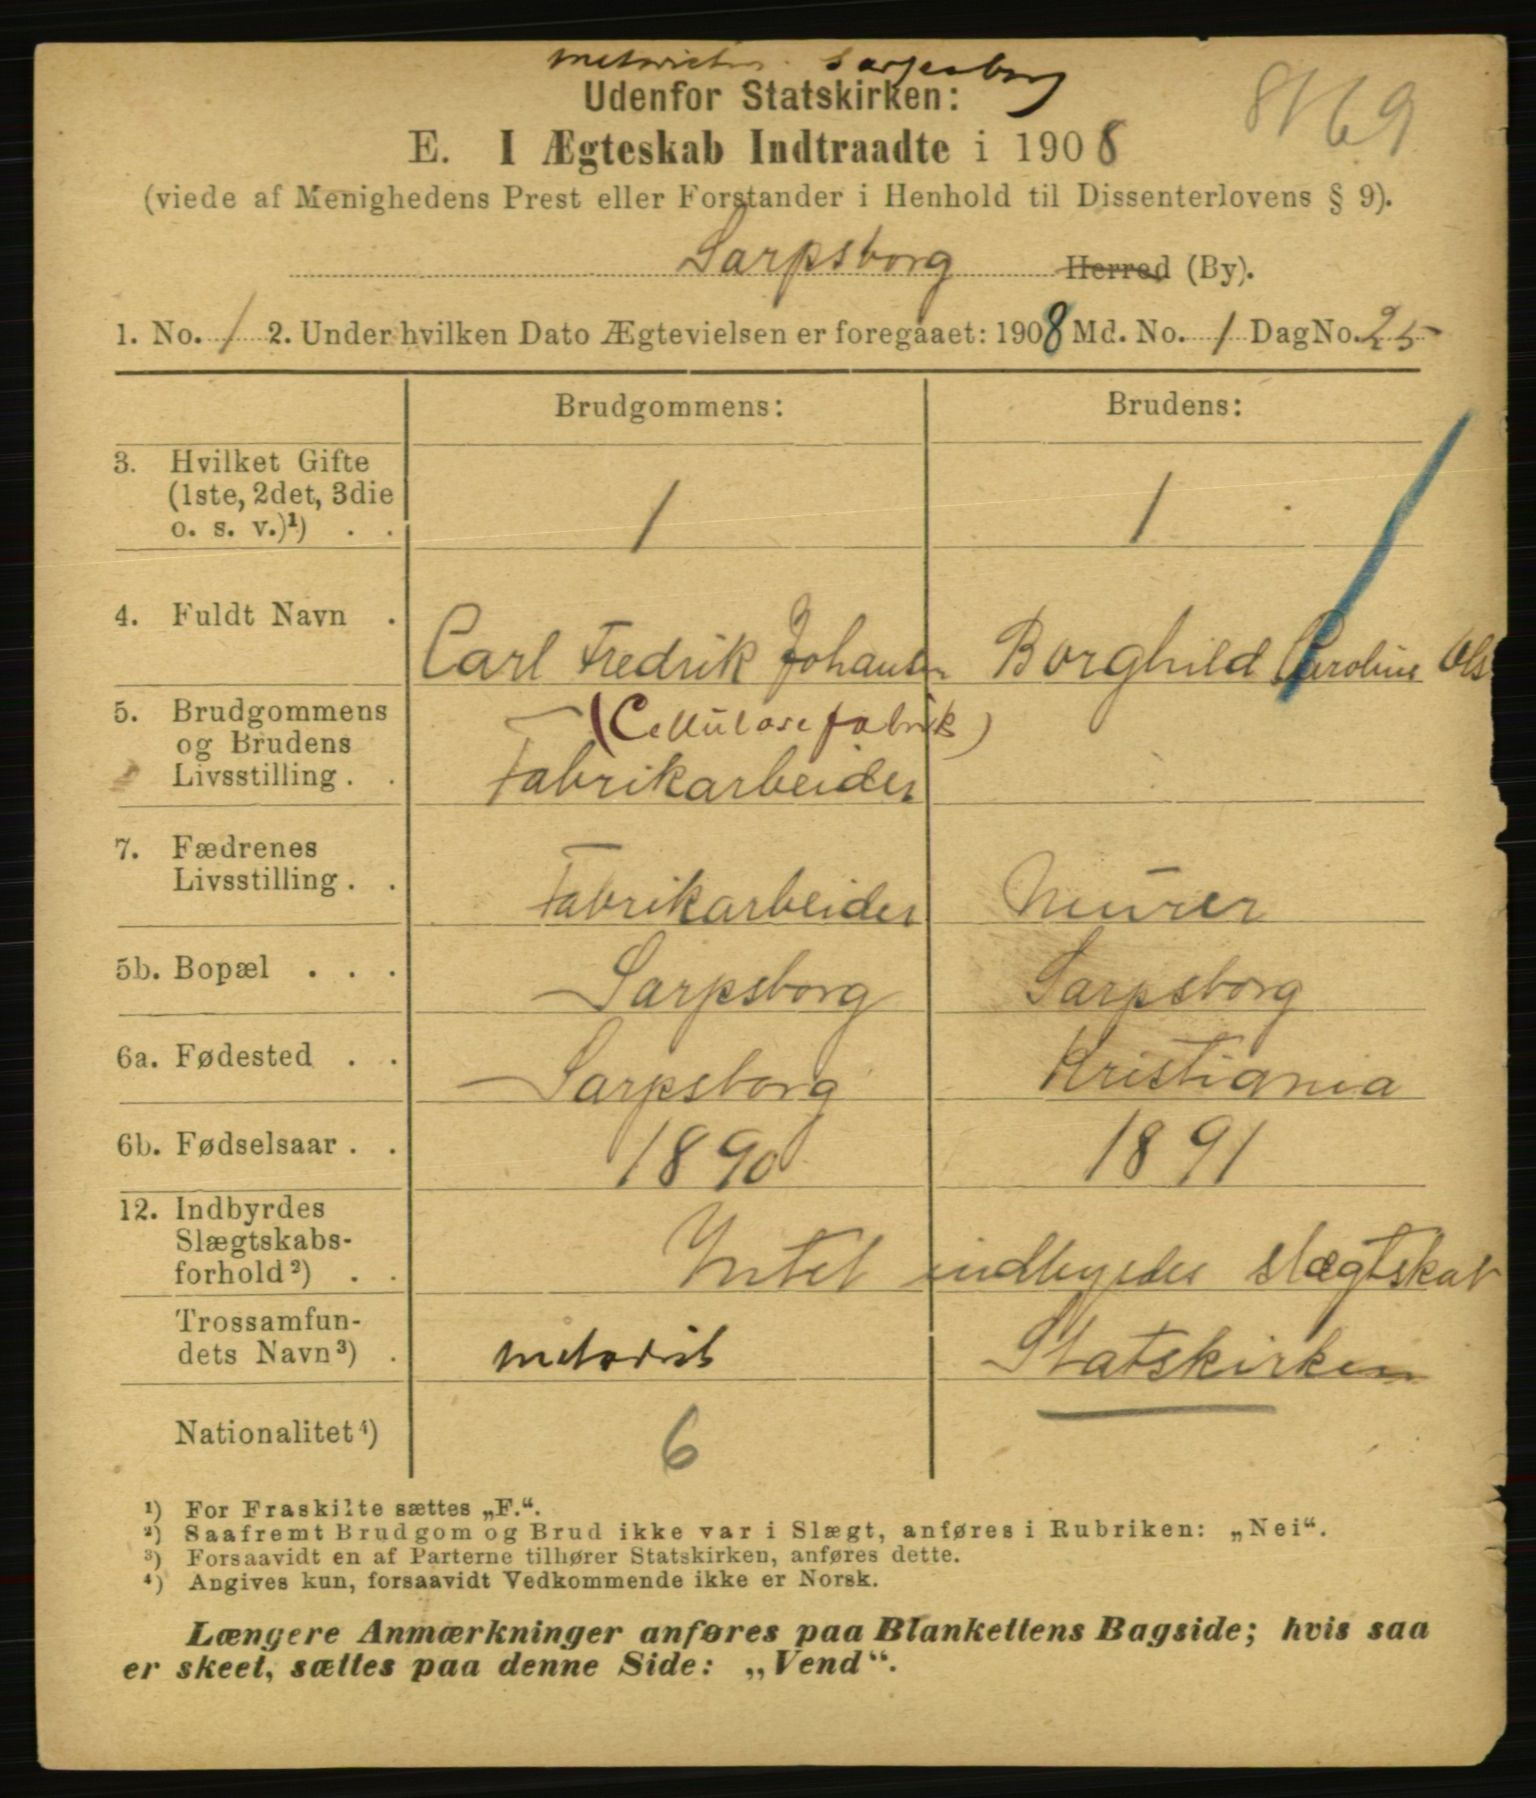 metodister Sarpsborg
8169
Udenfor Statskirken:
E. I Ægteskab Indtraadte i 1908
(viede af Menighedens Prest eller Forstander i Henhold til Dissenterlovens § 9).
Sarpsborg Herred (By).
1. No. 1 2. Under hvilken Dato Ægtevielsen er foregaaet: 1908 Md. No. 1 Dag No. 25
Brudgommens: Brudens:
3. Hvilket Gifte
(1ste, 2det, 3die
o. s. v.)¹) . . 1 1
4. Fuldt Navn . Carl Fredrik Johansen Borghild Caroline Ols
5. Brudgommens (Cellulosefabrik)
og Brudens
Livsstilling . . Fabrikarbeider
7. Fædrenes
Livsstilling . . Fabrikarbeider Murer
5b. Bopæl . . . Sarpsborg Sarpsborg
6a. Fødested . . Sarpsborg Kristiania
6b. Fødselsaar . . 1890 1891
12. Indbyrdes
Slægtskabs-
forhold²) . . Intet indbyrdes slægtskab
Trossamfun-
dets Navn³) . metodist Statskirken
Nationalitet⁴) 6
¹) For Fraskilte sættes „F.“.
²) Saafremt Brudgom og Brud ikke var i Slægt, anføres i Rubriken: „Nei“.
³) Forsaavidt en af Parterne tilhører Statskirken, anføres dette.
⁴) Angives kun, forsaavidt Vedkommende ikke er Norsk.
Længere Anmærkninger anføres paa Blankettens Bagside; hvis saa
er skeet, sættes paa denne Side: „Vend“.